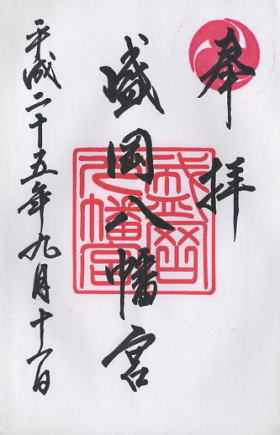 奉拝
盛岡八幡宮
盛岡八幡宮
平成二十五年九月十一日